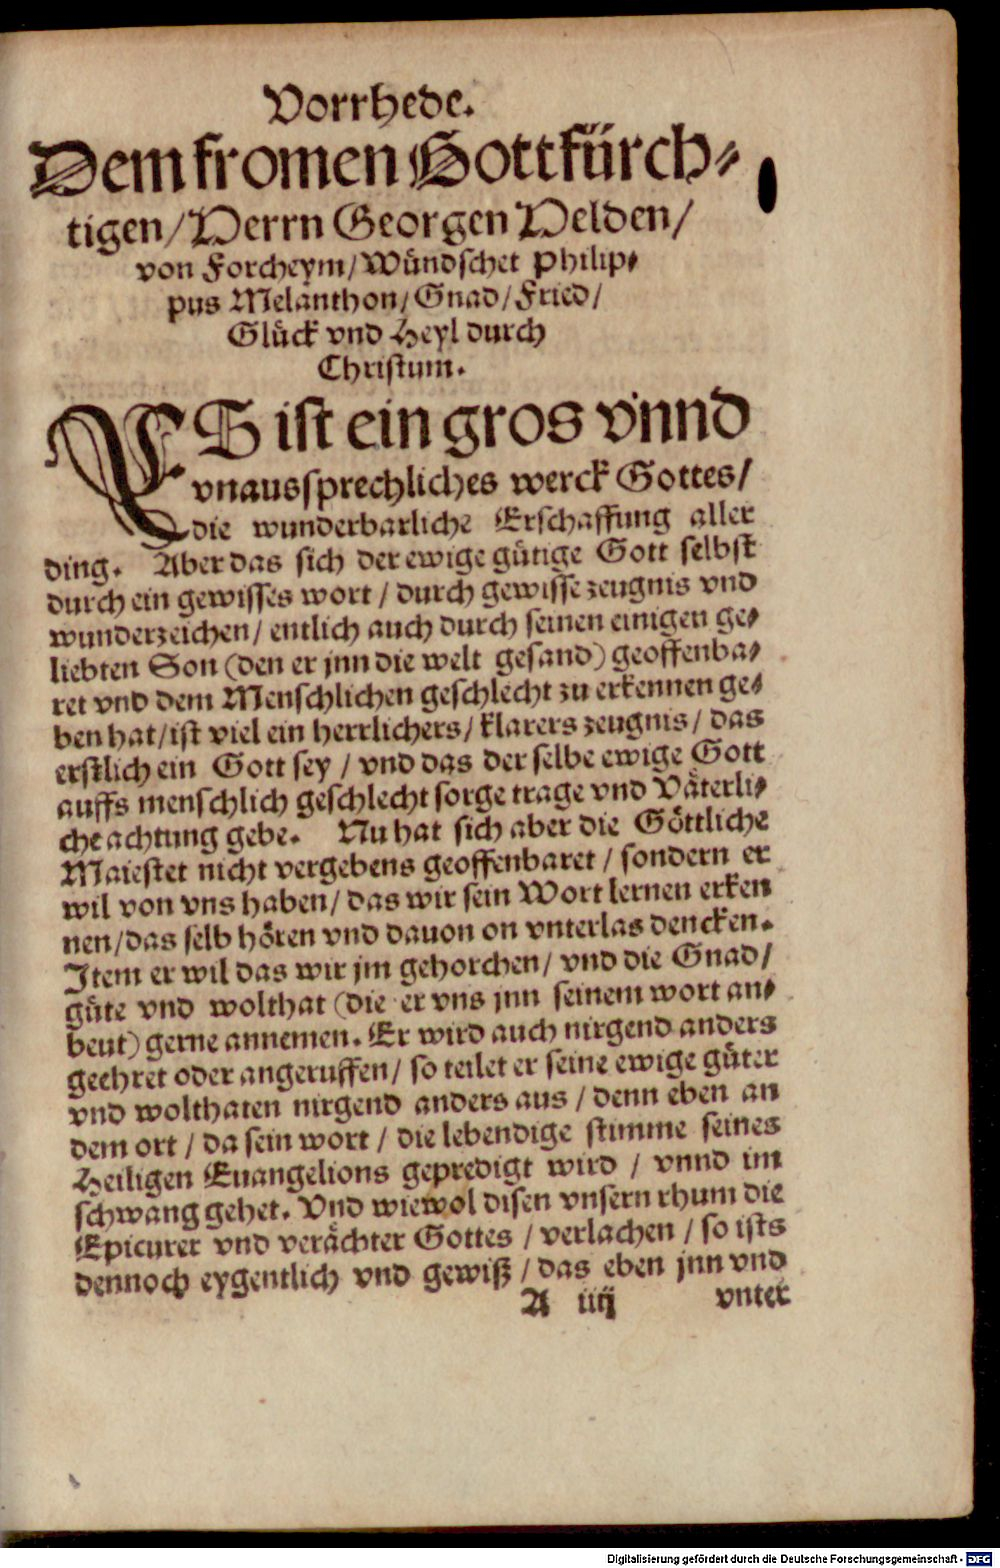 Vorrhede.
Dem fromen Gottfürch-
tigen/ Herrn Georgen Helden/
von Forcheym/ Wündschet Philip-
pus Melanthon/ Gnad/ Fried/
Glück vnd Heyl durch
Christum.
ES ist ein gros vnnd
vnaussprechliches werck Gottes/
die wunderbarliche Erschaffung aller
ding. Aber das sich der ewige gütige Gott selbst
durch ein gewisses wort / durch gewisse zeugnis vnd
wunderzeichen/ entlich auch durch seinen einigen ge-
liebten Son (den er jnn die welt gesand) geoffenba-
ret vnd dem Menschlichen geschlecht zu erkennen ge-
ben hat/ ist viel ein herrlichers/ klarers zeugnis/ das
erstlich ein Gott sey / vnd das der selbe ewige Gott
auffs menschlich geschlecht sorge trage vnd Väterli-
che achtung gebe. Nu hat sich aber die Göttliche
Maiestet nicht vergebens geoffenbaret / sondern er
wil von vns haben/ das wir sein Wort lernen erken
nen/ das selb hören vnd dauon on vnterlas dencken.
Item er wil das wir jm gehorchen/ vnd die Gnad/
güte vnd wolthat (die er vns jnn seinem wort an-
beut) gerne annemen. Er wird auch nirgend anders
geehret oder angeruffen/ so teilet er seine ewige güter
vnd wolthaten nirgend anders aus / denn eben an
dem ort / da sein wort / die lebendige stimme seines
Heiligen Euangelions gepredigt wird / vnnd im
schwang gehet. Vnd wiewol disen vnsern rhum die
Epicurer vnd verächter Gottes / verlachen / so ists
dennoch eygentlich vnd gewiß / das eben jnn vnd
A iiij vnter
Digitalisierung gefördert durch die Deutsche Forschungsgemeinschaft - DFG